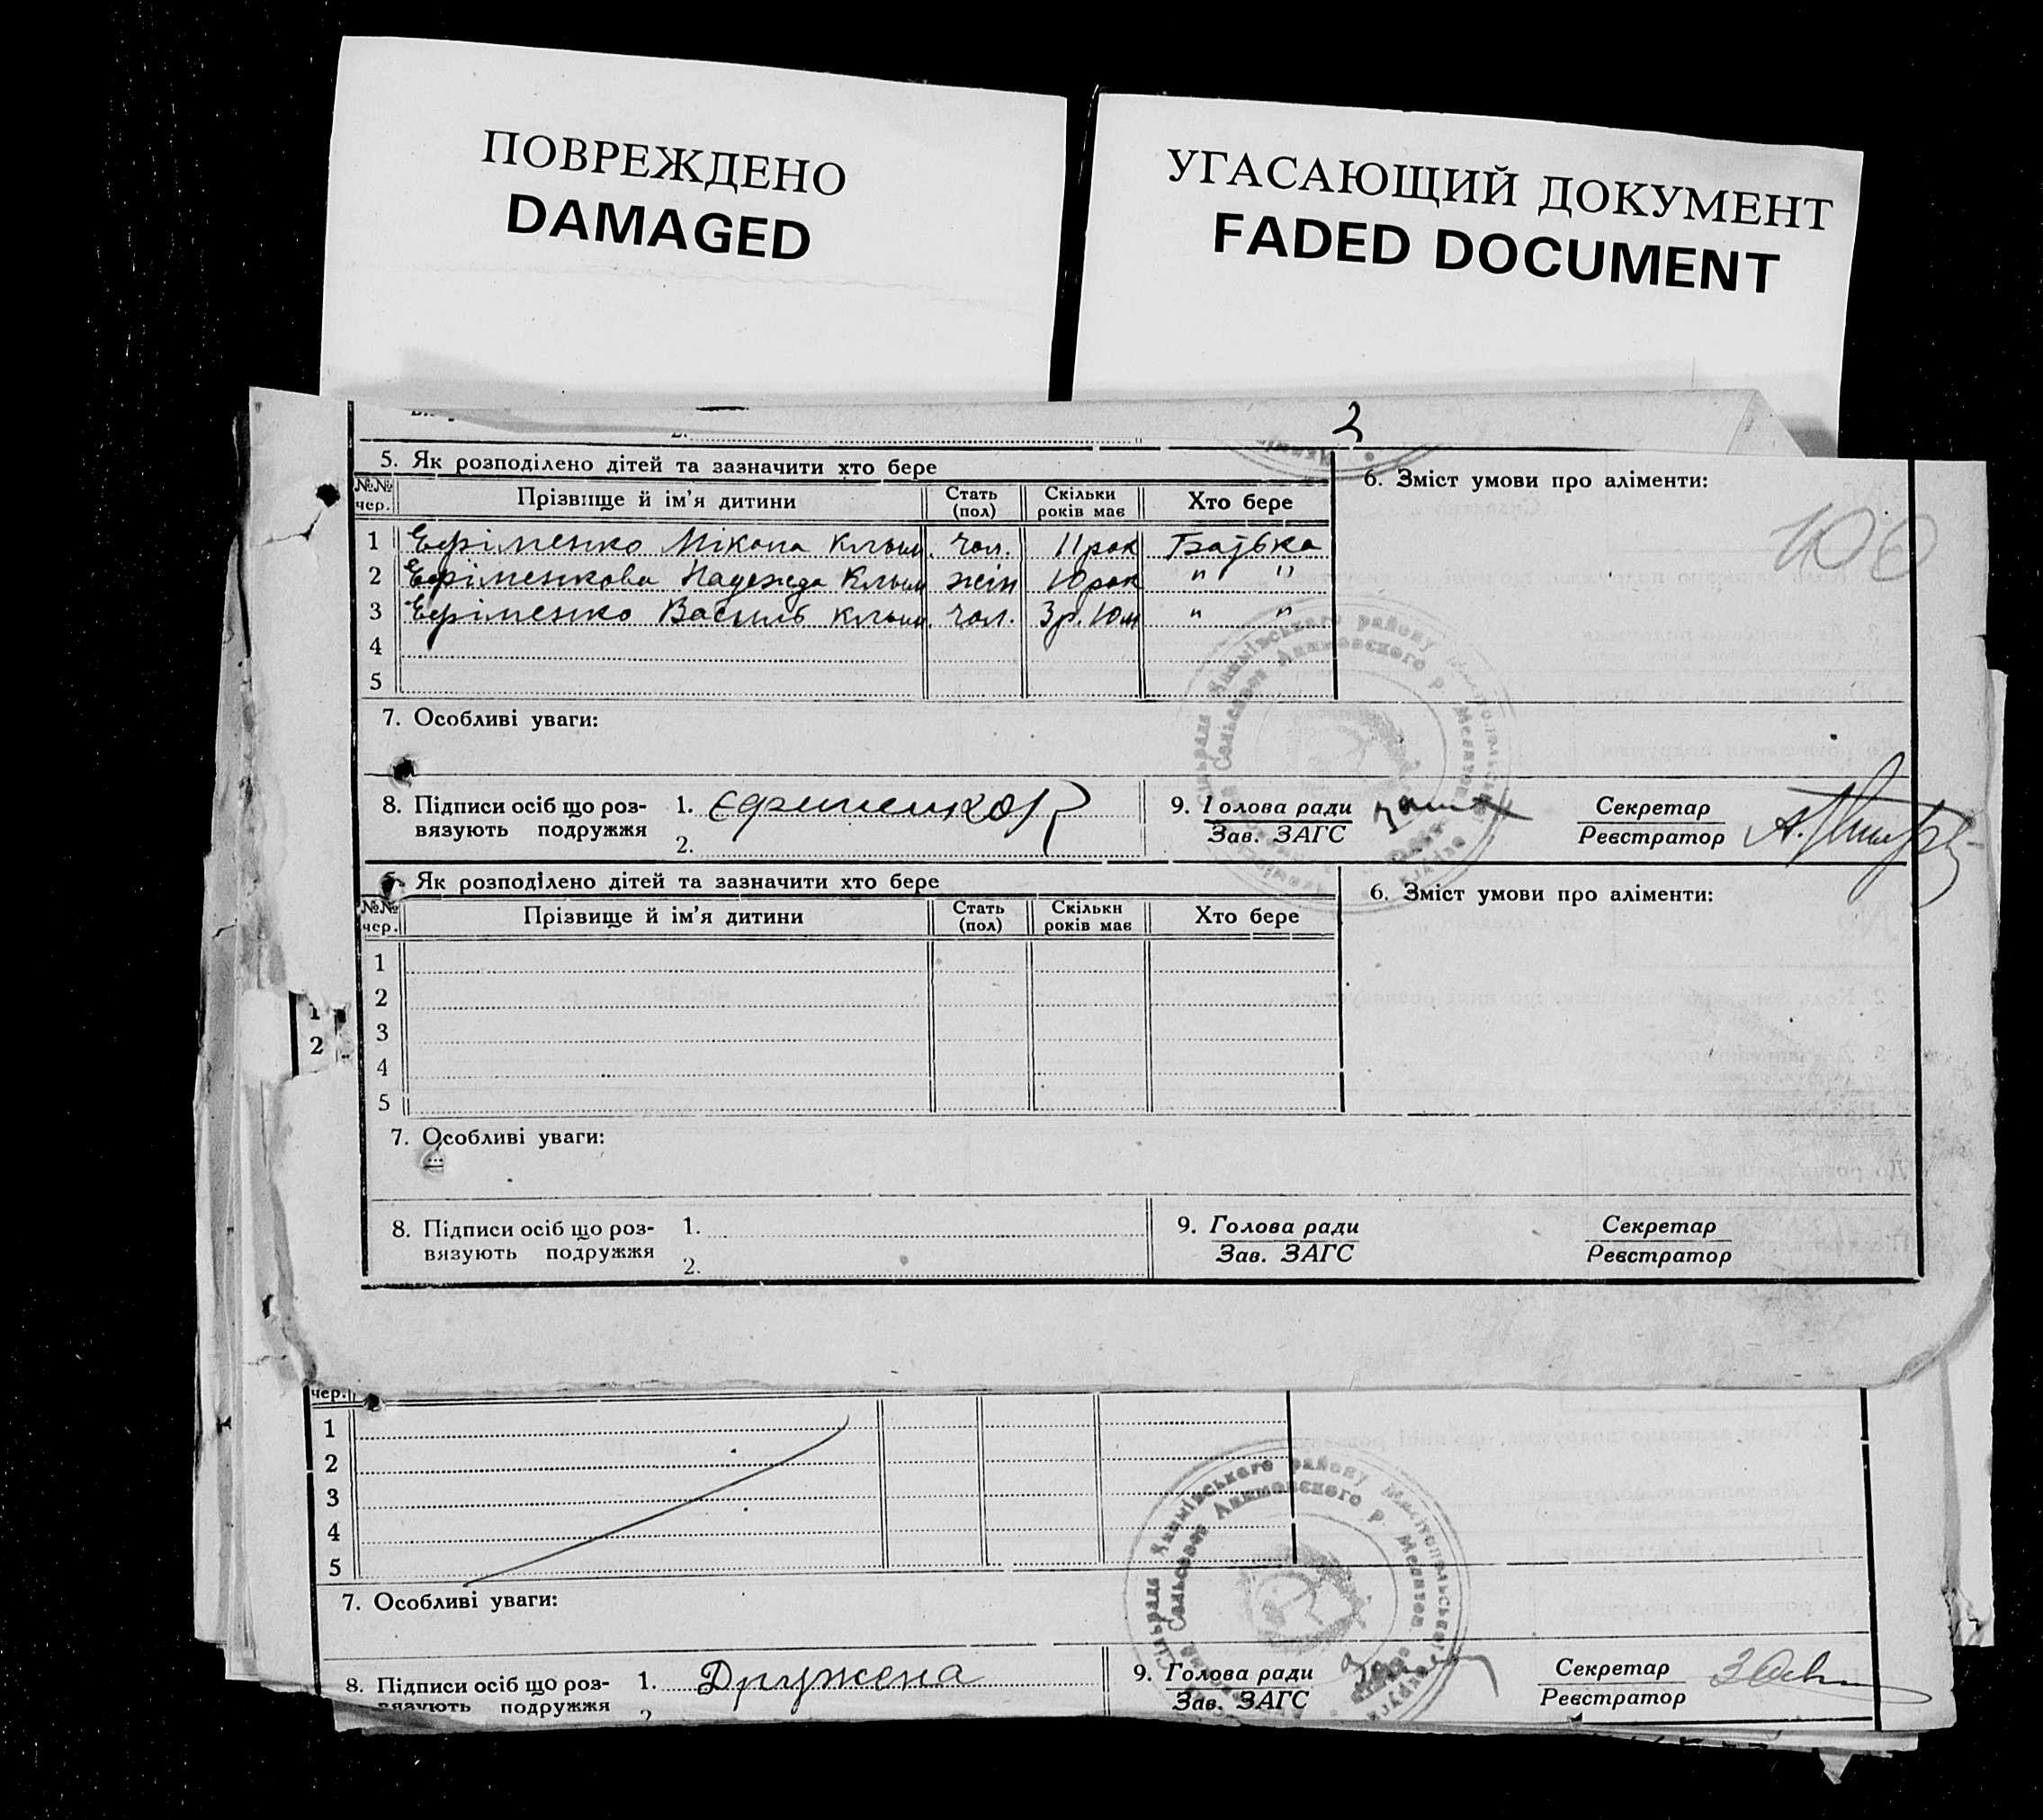 ПОВРЕЖДЕНО
DAMAGED
УГАСАЮЩИЙ ДОКУМЕНТ
FADED DOCUMENT
2
5. Як розподілено дітей та зазначити хто бере
6. Зміст умови про аліменти:
№№ чер. Прізвище й ім'я дитини Стать (пол) Скільки років має Хто бере
100
1 Ефіменко Мікола Клим. чол. 11 рок Батька
2 Ефіменкова Надежда Клим жін 10 рок " "
3 Ефіменко Василь Клим. чол. 3 р. 10 м " "
4
5
7. Особливі уваги:
8. Підписи осіб що роз-
вязують подружжя
1. Єфименко
2.
9. Голова ради
Зав. ЗАГС
Секретар
Реєстратор
5. Як розподілено дітей та зазначити хто бере
6. Зміст умови про аліменти:
№№ чер. Прізвище й ім'я дитини Стать (пол) Скільки років має Хто бере
1
2
3
4
5
1
2
7. Особливі уваги:
8. Підписи осіб що роз-
вязують подружжя
1.
2.
9. Голова ради
Зав. ЗАГС
Секретар
Реєстратор
чер.
1
2
3
4
5
7. Особливі уваги:
Якимівського району Мелітопольської
Сельсовет Акимовского р. Мелитоп.
8. Підписи осіб що роз-
вязують подружжя
1. Дружена
2
9. Голова ради
Зав. ЗАГС
Секретар
Реєстратор